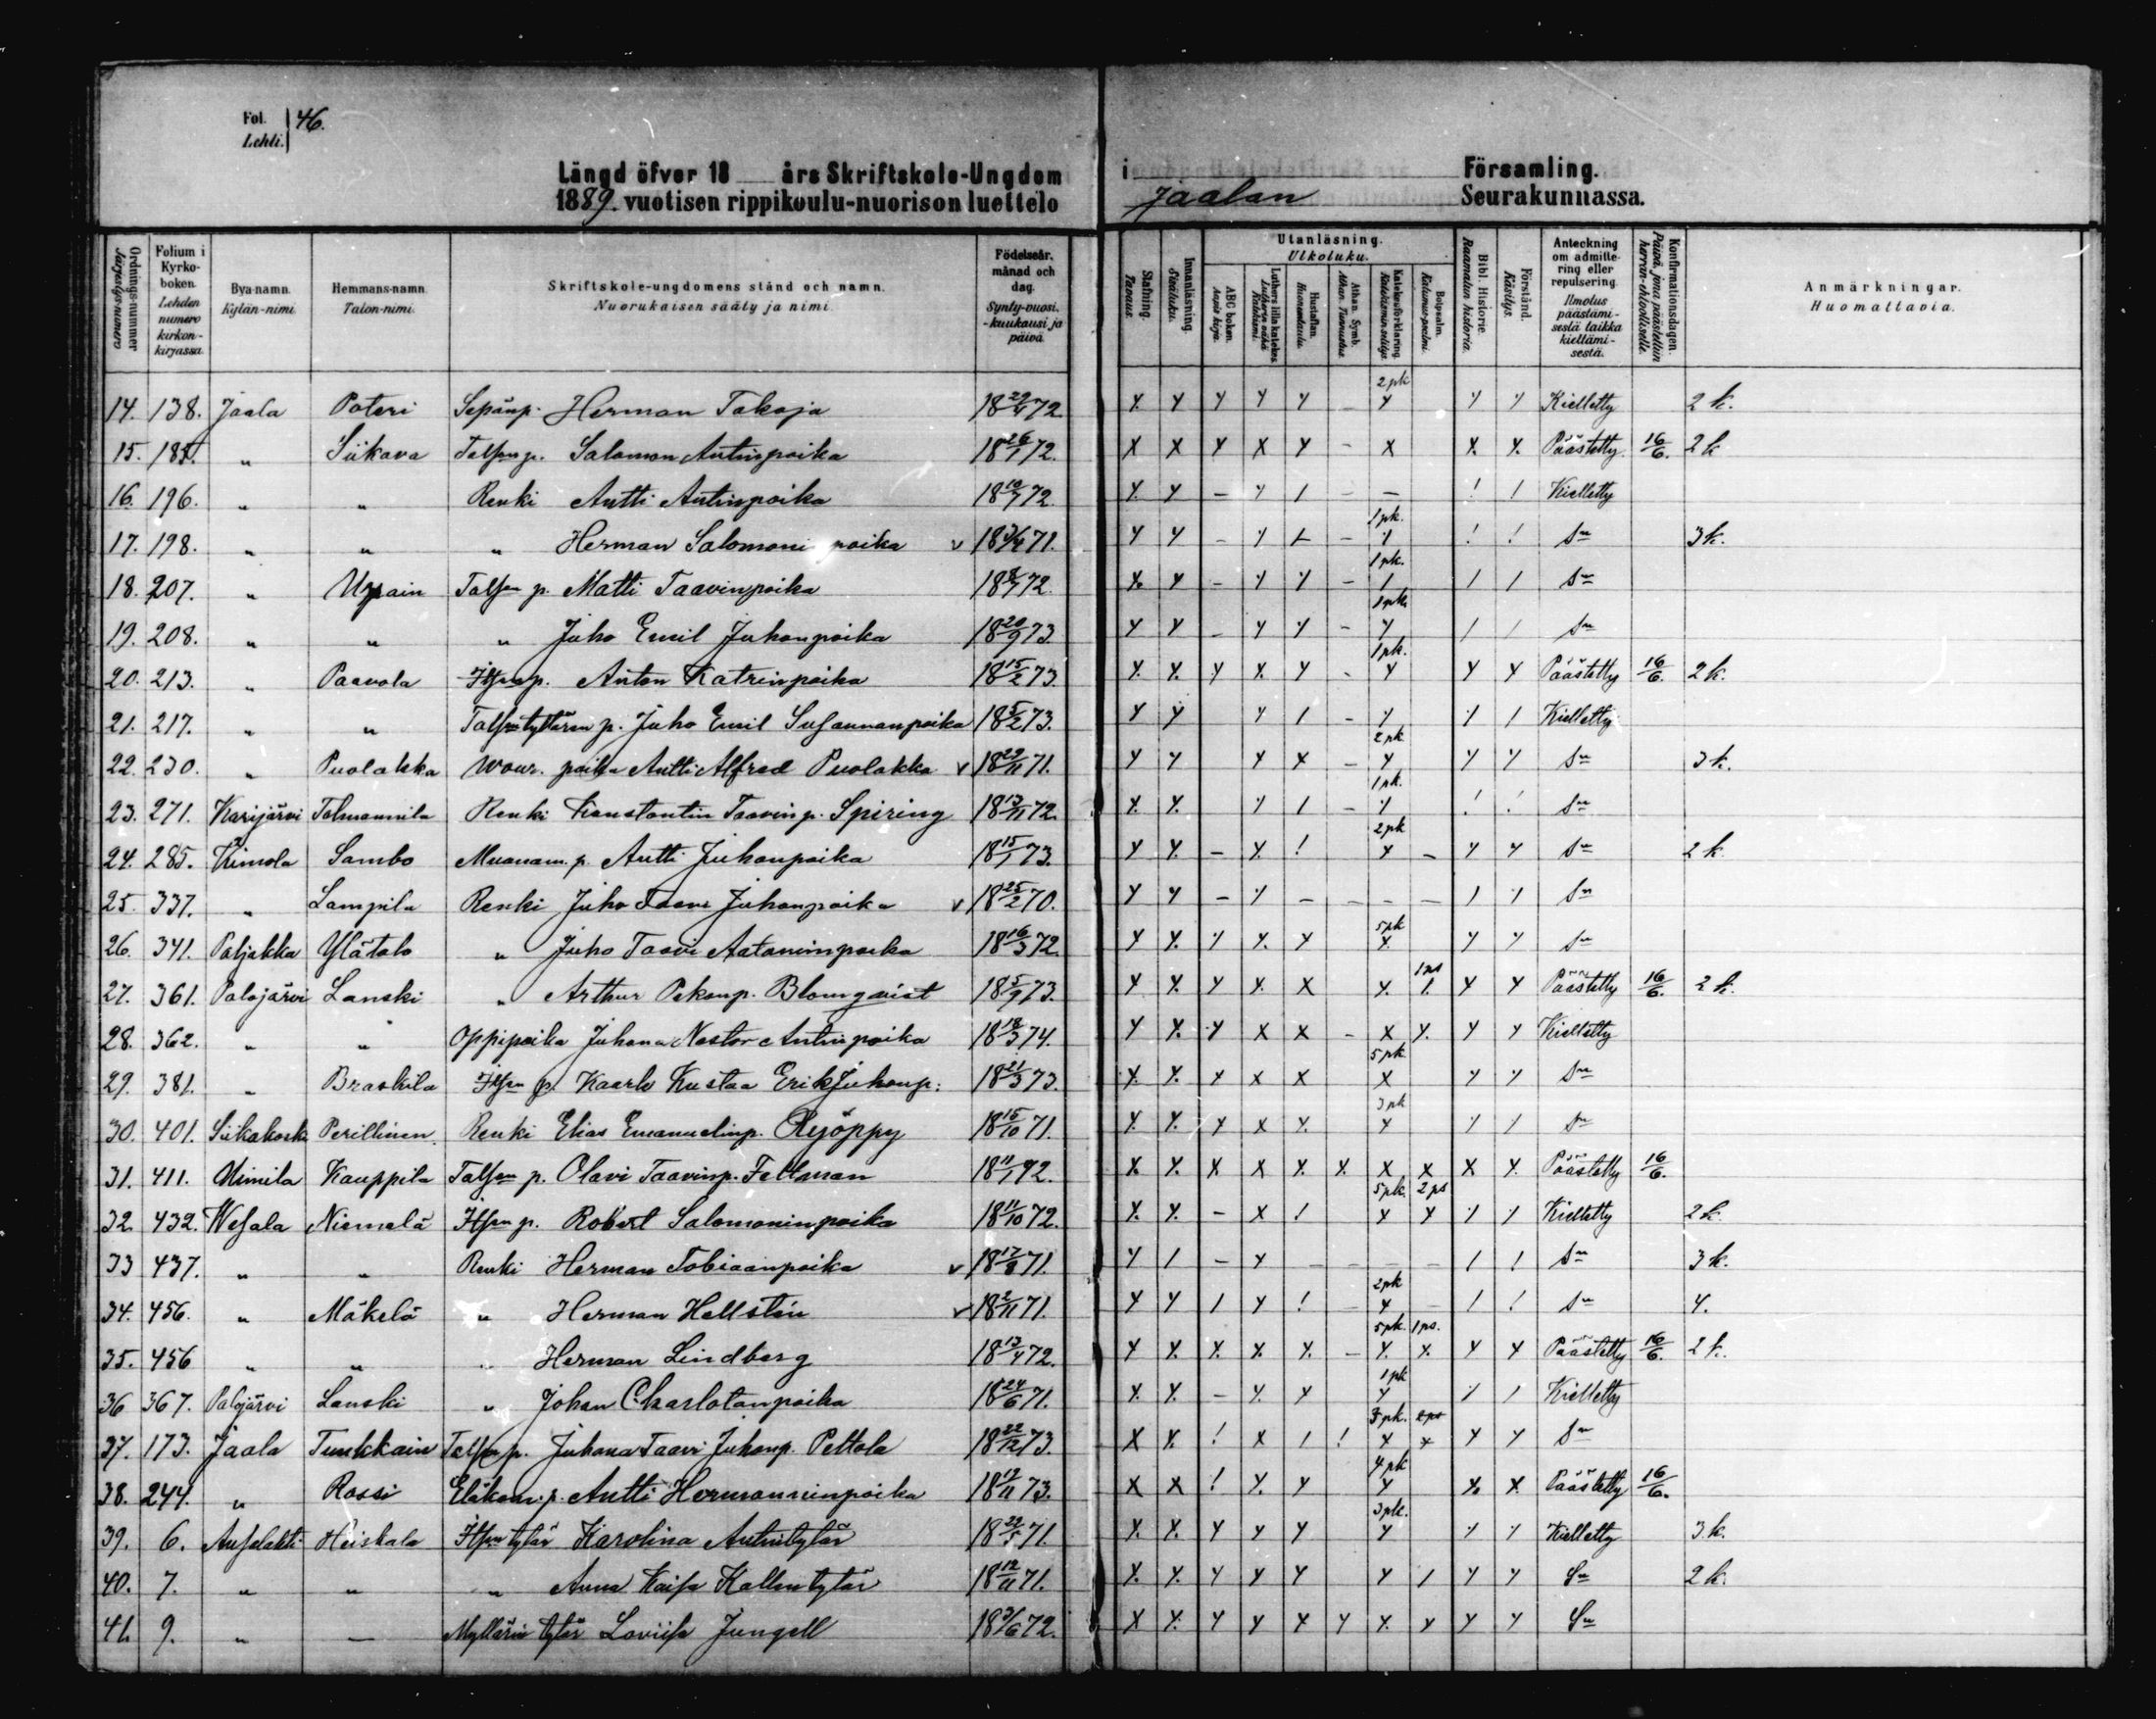 Fol. 46.
Lehti.
Längd öfver 18 års Skriftskole-Ungdom i Församling.
1889. vuotisen rippikoulu-nuorison luettelo Jaalan Seurakunnassa.
Ordnings-nummer Järjestys-numero
Folium i Kyrko-boken. Lehden numero kirkon-kirjassa.
Bya-namn. Kylän-nimi.
Hemmans-namn. Talon-nimi.
Skriftskole-ungdomens stånd och namn. Nuorukaisen sääty ja nimi.
Födelseår, månad och dag. Synty-vuosi, -kuukausi ja päivä.
Stafning. Tavaus.
Innanläsning. Sisäluku.
Utanläsning. Ulkoluku.
ABC boken. Aapis kirja.
Luthers lilla katekes. Lutherin vähä Katekismi.
Hustaflan. Huoneentaulu.
Athan. Symb. Athan. Tunnustus
Katekesförklaring. Katekismin selitys.
Botpsalm. Katumus-psalmi.
Bibl. Historie. Raamatun historia.
Förstånd. Käsitys.
Anteckning om admitte-ring eller repulsering. Ilmoitus päästämi-sestä taikka kieltämi-sestä.
Konfirmationsdagen. Päivä, jona päästettiin herran-ehtoolliselle.
Anmärkningar. Huomattavia.
14. 138. Jaala Poteri Sepänp. Herman Takoja 18 29/4 72. x y y y y – 2 pk y y y Kielletty 2 k.
15. 185. „ Siikava Talssn p. Salomon Antinpoika 18 26/1 72. x x y x y – x x x Päästetty 16/6. 2 k
16. 196. „ „ Renki Antti Antinpoika 18 10/7 72 y y – y / – – ! ! Kielletty
17. 198. „ „ „ Herman Salomoni poika v 18 71. y y – y – 1 pk. y ! ! sn 3 k.
18. 207. „ Talssn p. Matti Taavinpoika 18 8/7 72. x y – y y – 1 pk. / / / sn
19. 208. „ „ „ Juho Emil Juhonpoika 18 20/9 73. y y – y y – 1 pk y / / sn
20. 213. „ Paavola Itssn p. Anton Katrinpoika 18 15/2 73. x x y x y – 1 pk. y y y Päästetty 16/6. 2 k.
21. 217. „ „ Talssntyttären p. Juho Emil Susannanpoika 18 5/2 73. y y y / – y y / Kielletty
22. 230. „ Puolakka Wour. poika Antti Alfred Puolakka v 18 29/11 71. y y y x – 2 pk y y y sn 3 k.
23. 271. Karijärvi Tolmannila Renki Konstantin Taavinp. Spiring 18 13/11 72. x x y / – 1 pk. y ! ! sn
24. 285. Kimola Sambo Muonam. p. Antti Juhonpoika 18 15/1 73. y y – y ! 2 pk y – y y sn 2 k
25. 337. „ Lampila Renki Juho Taavi Juhonpoika v 18 25/2 70. y y – y – – – – / y sn
26. 341. Paljakka Ylätalo „ Juho Taavi Aataminpoika 18 16/3 72. y y y y y 5 pk x y y sn
27. 361. Palojärvi Lanski „ Arthur Oskonp. Blomqvist 18 5/9 73. y x y x x x 1 ps 1. y y Päästetty 16/6. 2 k.
28. 362. „ „ Oppipoika Juhana Nestor Antinpoika 18 18/3 74. y x y x x – x y y y Kielletty
29. 381. „ Braskila Itssn p. Kaarlo Kustaa Erik Juhonp. 18 21/3 73. x x y x x 5 pk x y y sn
30. 401. Siikakoski Perillinen Renki Elias Emanuelinp. Röjöppy 18 15/10 71. x x y x y 3 pk y y y sn
31. 411. Uimila Kauppila Talssn p. Olavi Taavinp. Feltman 18 11/1 72. x x x x x x x x x y Päästetty 16/6.
32. 432. Wesala Niemelä Itssn p. Robert Salomoninpoika 18 11/10 72. x x – x ! 5 pk. x 2 ps y y y Kielletty 2 k.
33 437. „ „ Renki Herman Tobiaanpoika v 18 17/8 71. y / – y – – – – / ! sn 3 k.
34. 456. „ Mäkelä „ Herman Hellstén v 18 2/11 71. y y / y ! – 2 pk y – / ! sn 4.
35. 456 „ „ „ Herman Lindberg 18 13/4 72. y x x x x – 5 pk. x 1 ps. x y y Päästetty 16/6. 2 k.
36 367. Palojärvi Lanski „ Johan Charlotanpoika 18 24/6 71. x x – y y 1 pk y y / Kielletty
37. 173. Jaala Tunkkain Talssn p. Juhana Taavi Juhonp. Peltola 18 22/12 73. x x ! x / ! 3 pk. x 2 ps x y y sn
38. 244. „ Rossi Eläkem. p. Antti Hermanninpoika 18 12/11 73. x x ! y y 4 pk y x x Päästetty 16/6.
39. 6. Ansalahti Heiskala Itssn tytär Karolina Antintytär 18 22/5 71. x x y y y 3 pk. y y y Kielletty 3 k.
40. 7. „ „ „ Anna Kaisa Kallentytär 18 12/11 71. y x y y y y / y y Sn 2 k.
41. 9. „ — Myllärin tytär Loviisa Jungell 18 3/6 72. x x y y x y x y y y Sn